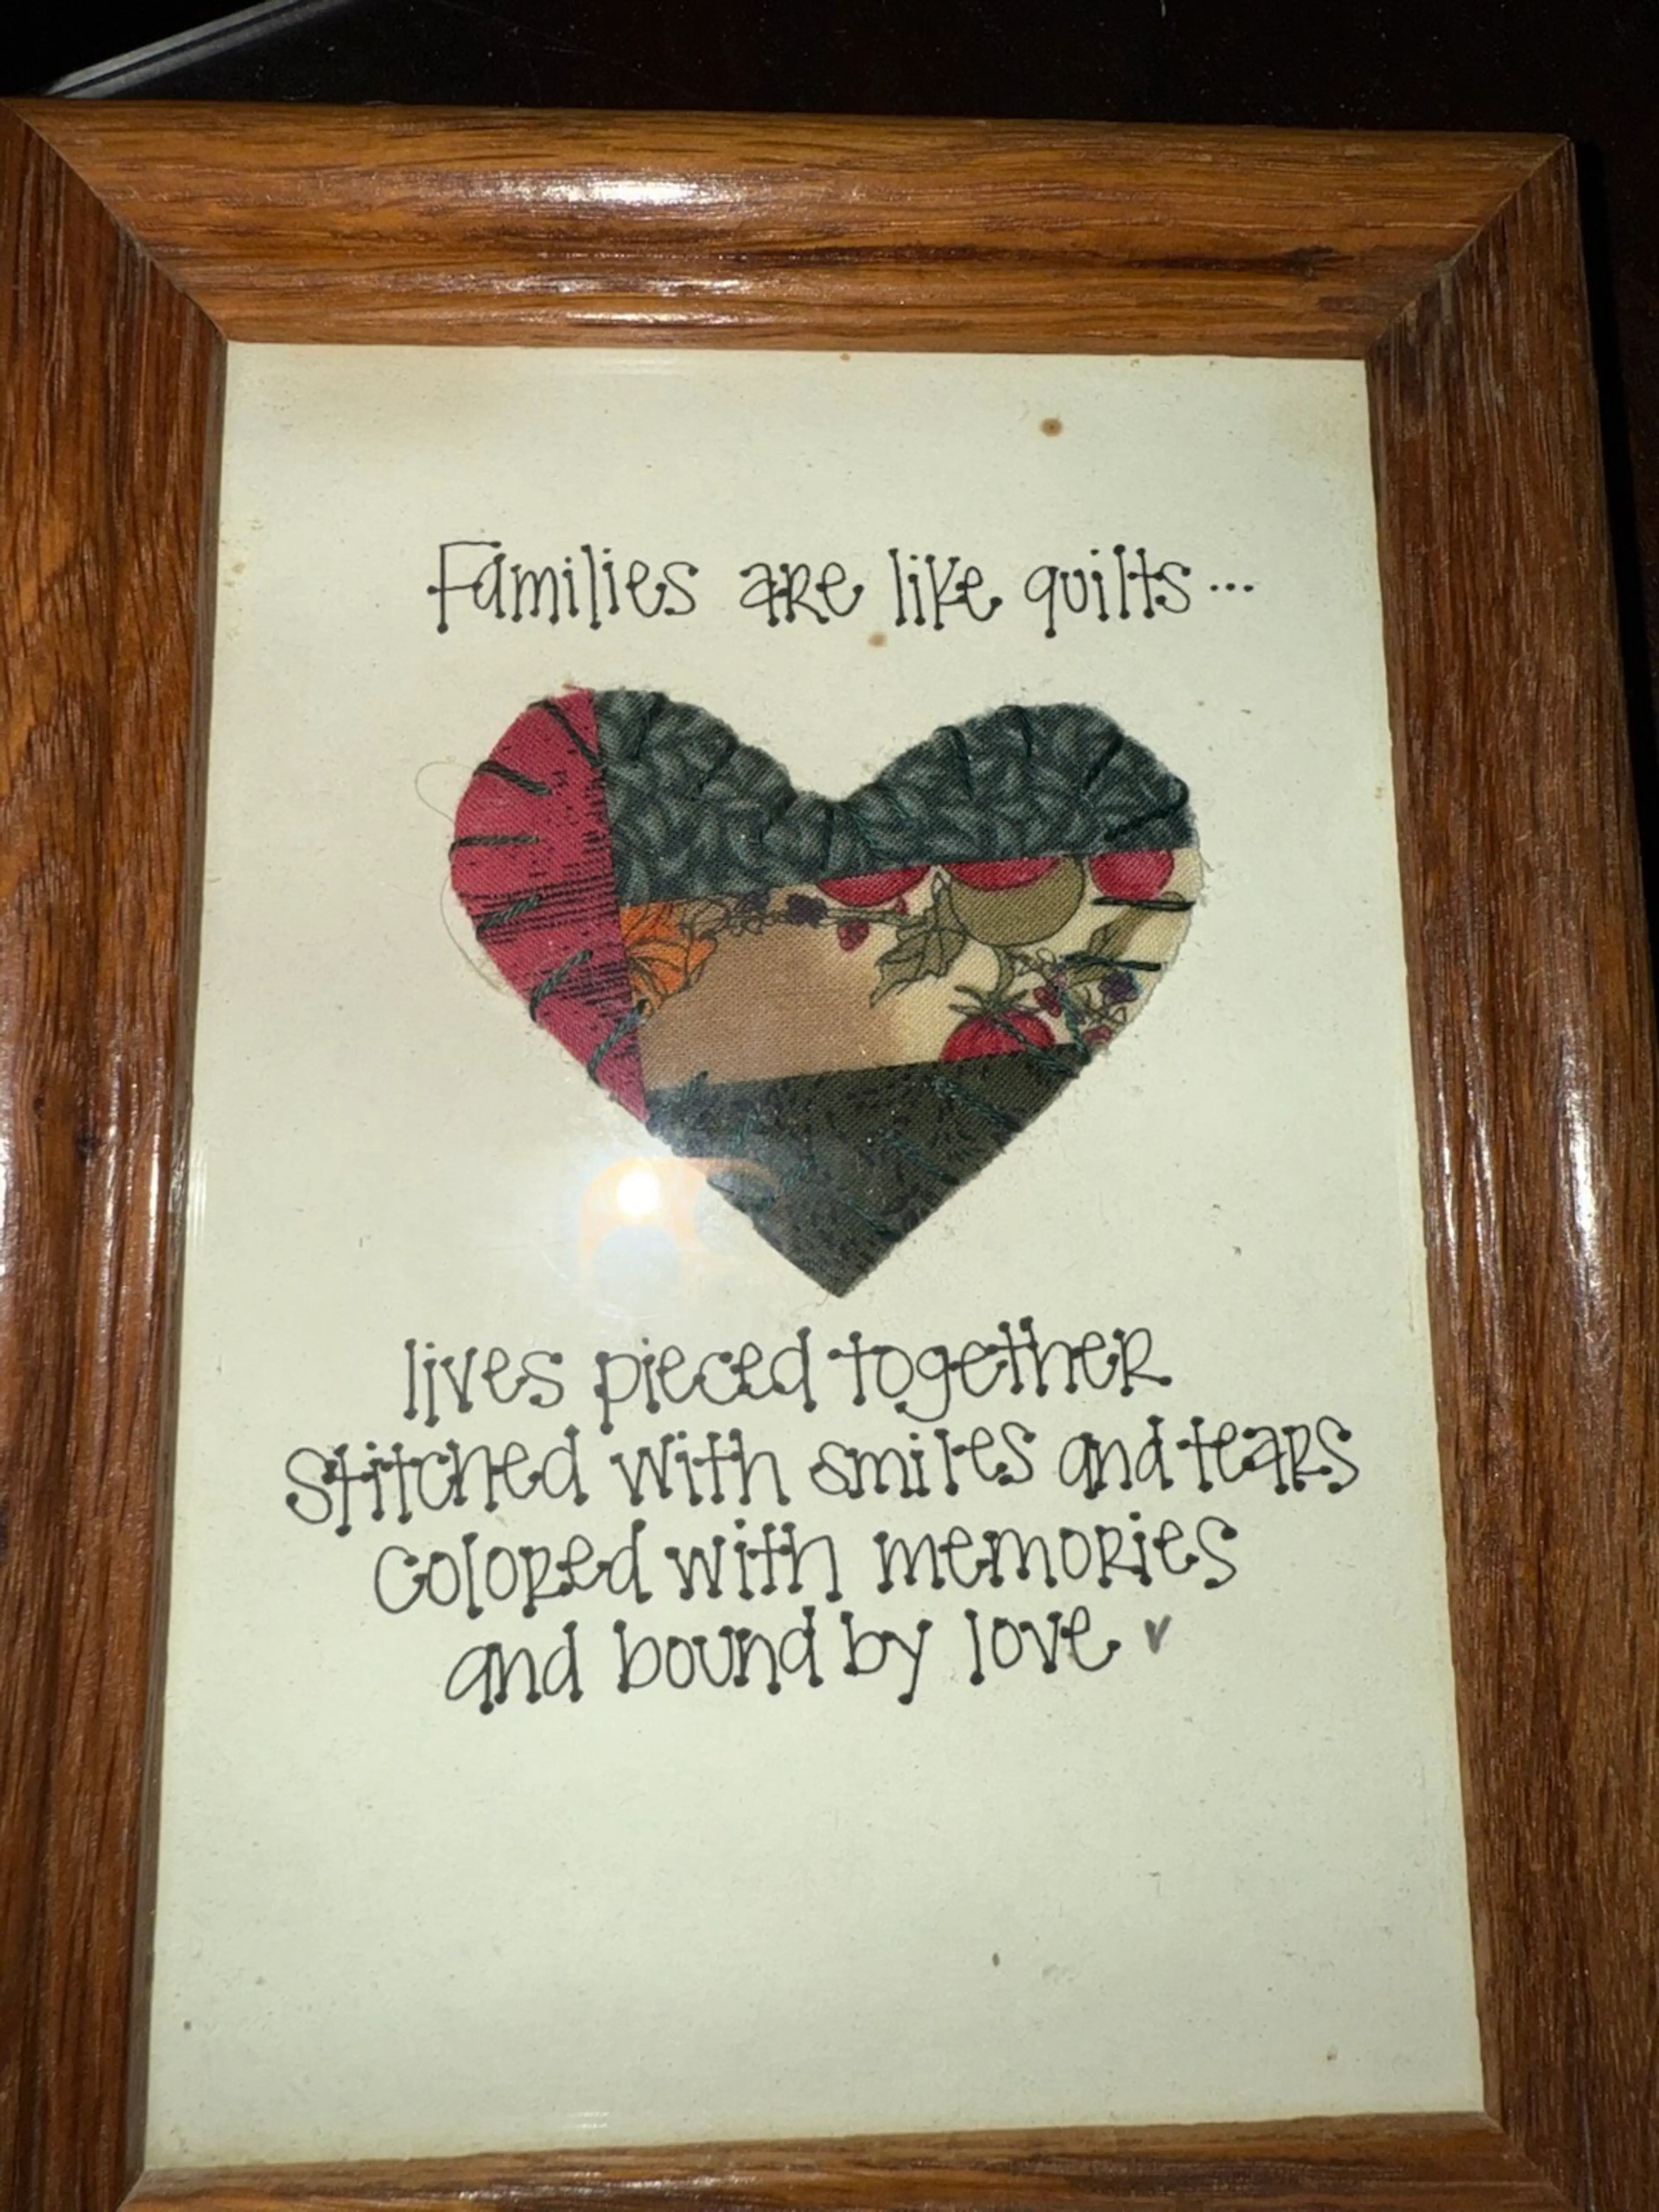 Families are like quilts...
lives pieced together
Stitched with smiles and tears
Colored with memories
and bound by love